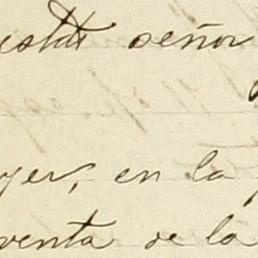 señor
yer, en la
venta de la